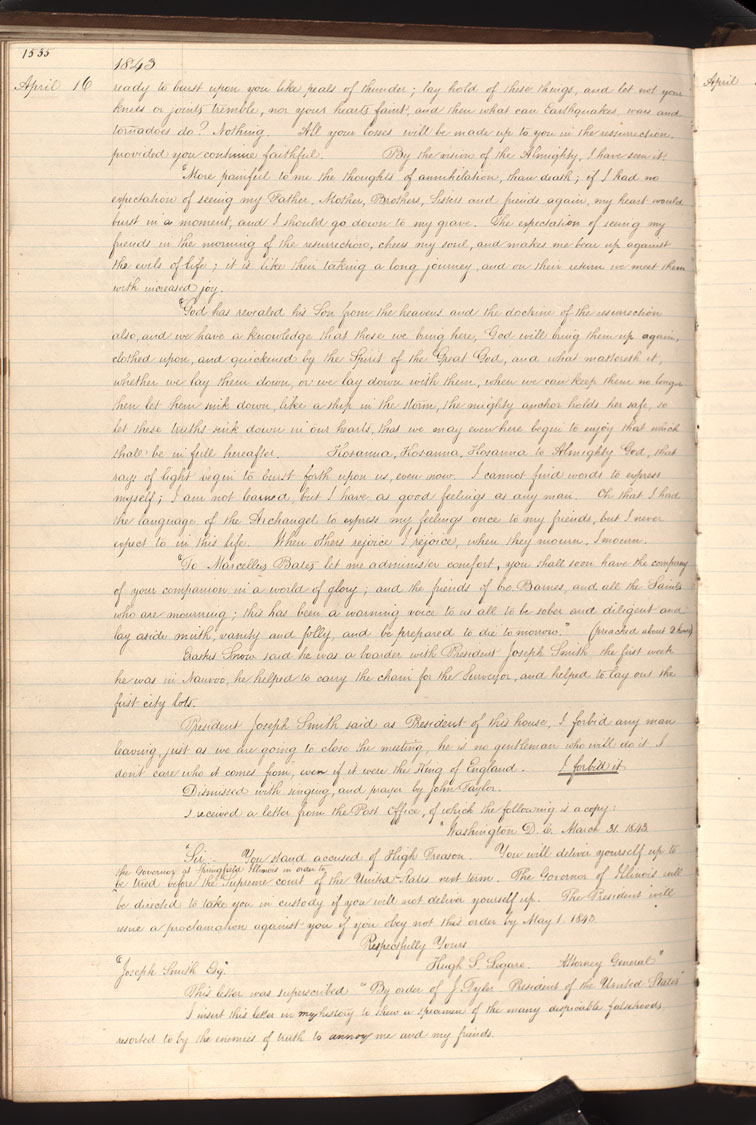 1535
1843
April 16 ready to burst upon you like peals of thunder; lay hold of these things, and let not your
knees or joints tremble, nor your hearts faint, and then what can Earthquakes, wars and
tornadoes do? Nothing. All your losses will be made up to you in the resurrection,
provided you continue faithful. By the vision of the Almighty, I have seen it.
"More painful to me the thoughts of annihilation, than death; if I had no
expectation of seeing my Father, Mother, Brothers, Sisters and friends again, my heart would
burst in a moment, and I should go down to my grave. The expectation of seeing my
friends in the morning of the resurrection, cheers my soul, and makes me bear up against
the evils of life; it is like their taking a long journey, and on their return we meet them
with increased joy.
"God has revealed his Son from the heavens and the doctrine of the resurrection
also, and we have a knowledge that those we bring here, God will bring them up again,
clothed upon, and quickened by the Spirit of the Great God, and what mattereth it,
whether we lay them down, or we lay down with them, when we can keep them no longer
then let them sink down, like a ship in the storm, the mighty anchor holds her safe, so
let these truths sink down in our hearts, that we may even here begin to enjoy that which
shall be in full hereafter. Hosanna, Hosanna, Hosanna to Almighty God, that
rays of light begin to burst forth upon us, even now. I cannot find words to express
myself; I am not learned, but I have as good feelings as any man. Oh that I had
the language of the Archangel to express my feelings once to my friends, but I never
expect to in this life. When others rejoice I rejoice, when they mourn, I mourn.
"To Marcellus Bates let me administer comfort, you shall soon have the company
of your companion in a world of glory; and the friends of bro. Barnes, and all the Saints
who are mourning; this has been a warning voice to us all to be sober and diligent and
lay aside mirth, vanity and folly, and be prepared to die to-morrow." (preached about 2 hours)
Erastus Snow said he was a boarder with President Joseph Smith the first week
he was in Nauvoo, he helped to carry the chain for the Surveyor, and helped to lay out the
first city lots.
President Joseph Smith said as President of this house, I forbid any man
leaving just as we are going to close the meeting, he is no gentleman who will do it, I
don't care who it comes from, even if it were the King of England. I forbid it.
Dismissed with singing, and prayer by John Taylor.
I received a letter from the Post Office, of which the following is a copy:
"Washington D. C. March 31. 1843.
"Sir. You stand accused of High Treason. You will deliver yourself up to
the Governor at Springfield Illinois in order to
be tried before the Supreme court of the United States next term. The Governor of Illinois will
be directed to take you in custody if you will not deliver yourself up. The President will
issue a proclamation against you if you obey not this order by May 1. 1843.
Respectfully Yours
Hugh S. Legare. Attorney General"
"Joseph Smith Esq".
This letter was superscribed "By order of J. Tyler President of the United States"
I insert this letter in my history to shew a specimen of the many despicable falsehoods
resorted to by the enemies of truth to annoy me and my friends.
April